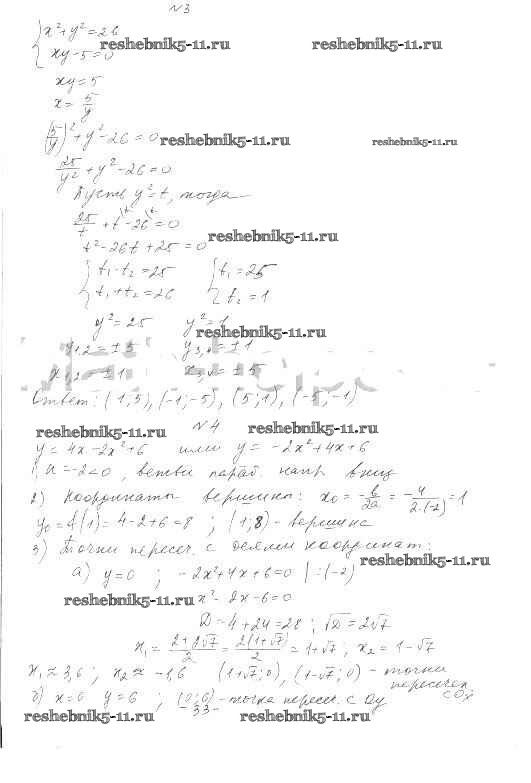 №3
{x²+y²=26
{xy-5=0
reshebnik5-11.ru reshebnik5-11.ru
xy=5
x=5/y
(5/y)²+y²-26=0 reshebnik5-11.ru reshebnik5-11.ru
25/y²+y²-26=0
Пусть y²=t, тогда
25/t+t-26=0
reshebnik5-11.ru
t²-26t+25=0
{t₁·t₂=25 {t₁=25
{t₁+t₂=26 {t₂=1
y²=25 y²=1
reshebnik5-11.ru
y₁,₂=±5 y₃,₄=±1
x₁,₂=±1 x₃,₄=±5
Ответ: (1;5), (-1;-5), (5;1), (-5;-1)
№4
reshebnik5-11.ru reshebnik5-11.ru
y=4x-2x²+6 или y=-2x²+4x+6
1) a=-2<0, ветви параб. напр. вниз
2) Координаты вершины: x₀=-b/2a=-4/2·(-2)=1
y₀=4(1)=4-2+6=8; (1;8)-вершина
3) Точки пересеч. с осями координат:
reshebnik5-11.ru
а) y=0; -2x²+4x+6=0 |:(-2)
reshebnik5-11.ru x²-2x-6=0
D=4+24=28; √D=2√7
x₁=2+2√7/2=2(1+√7)/2=1+√7; x₂=1-√7
x₁≈3,6; x₂≈-1,6 (1+√7;0), (1-√7;0)-точки
пересечен.
с Ox
б) x=0 y=6; (0;6)-точка пересеч. с Oy
-33-
reshebnik5-11.ru reshebnik5-11.ru